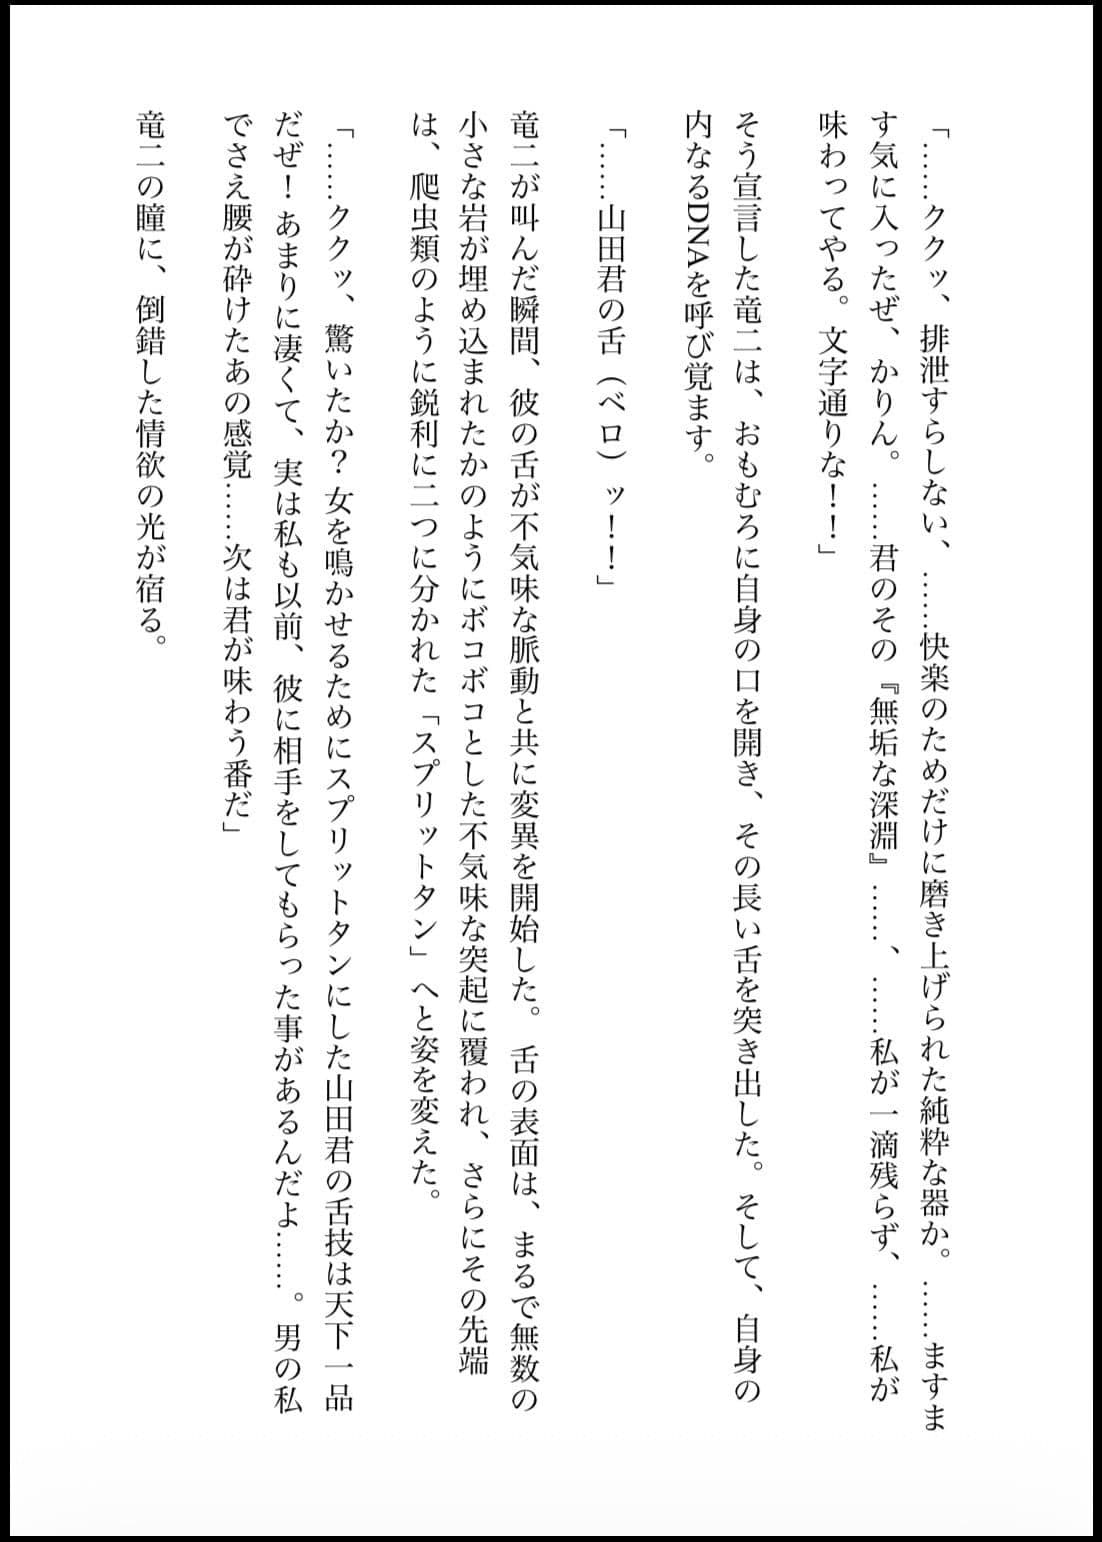 「……ククッ、排泄すらしない、……快楽のためだけに磨き上げられた純粋な器か。……ますま
す気に入ったぜ、かりん。……君のその『無垢な深淵』……、……私が一滴残らず、……私が
味わってやる。文字通りな！！」
そう宣言した竜二は、おもむろに自身の口を開き、その長い舌を突き出した。そして、自身の
内なるDNAを呼び覚ます。
「……山田君の舌（ベロ）ッ！！」
竜二が叫んだ瞬間、彼の舌が不気味な脈動と共に変異を開始した。舌の表面は、まるで無数の
小さな岩が埋め込まれたかのようにボコボコとした不気味な突起に覆われ、さらにその先端
は、爬虫類のように鋭利に二つに分かれた「スプリットタン」へと姿を変えた。
「……ククッ、驚いたか？女を鳴かせるためにスプリットタンにした山田君の舌技は天下一品
だぜ！あまりに凄くて、実は私も以前、彼に相手をしてもらった事があるんだよ……。男の私
でさえ腰が砕けたあの感覚……次は君が味わう番だ」
竜二の瞳に、倒錯した情欲の光が宿る。